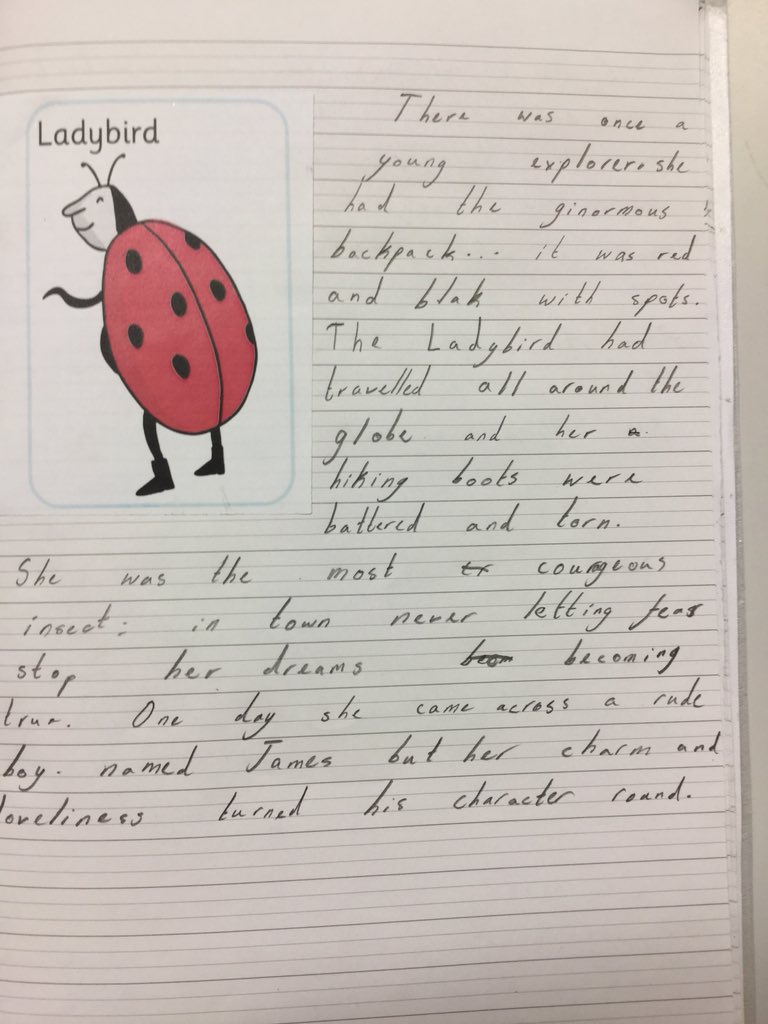 Ladybird
There was once a
young explorer. she
had the ginormous
backpack... it was red
and blak with spots.
The Ladybird had
travelled all around the
globe and her
hiking boots were
battered and torn.
She was the most courgeous
insect: in town never letting fear
stop her dreams becoming
true. One day she came across a rude
boy. named James but her charm and
loveliness turned his character round.